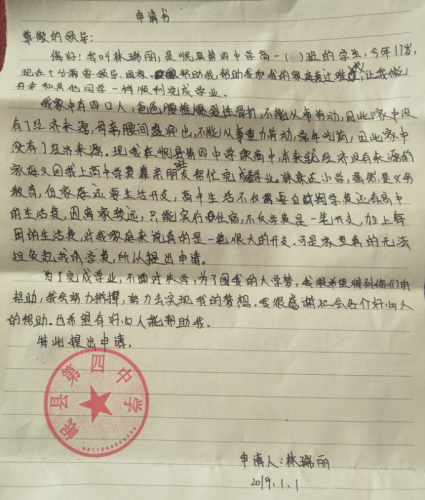 申请书
尊敬的领导:
您好!我叫林瑞丽,是 县第四中学高一( )班的学生,今年17岁,
现在十分需要领导、国家、 帮助我,帮助我和我的家庭度过难关,让我能
有幸和其他同学一样顺利完成学业。
我家中有四口人,爸爸腰椎爆裂性骨折,不能从事劳动,因此家中没
有了经济来源,母亲腰间盘突出,不能从事重力劳动,常年吃药,因此家中
没有了经济来源。现我在 县第四中学读高中,本来就经济没有来源的
家庭又因我上高中学费靠亲朋友帮忙完成学业。妹妹在小学,虽然是义务
教育,但家庭还要生活开支,高中生活不仅需要自助 学费还有高中
的生活费,因离家较远,只能实行寄住宿,不仅学费是一笔开支,加上每
周的生活费,对我家庭来说真的是一笔很大的开支。可是家里真的无法
担负起我 学费,所以提出申请。
为了完成学业,不面对失学,为了圆我的大学梦,我很希望得到你们的
帮助,我会努力拼搏,努力去实现我的梦想。我很感谢社会各个好心人
的帮助。也希望有好心人能帮助我。
特此提出申请。
县第四中学
申请人:林瑞丽
2019.1.1